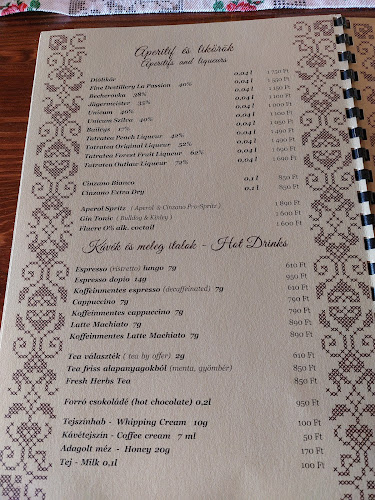 Aperitif és likőrök
Aperitifs and liqueurs
Diólikőr 0,04 l 1 750 Ft
Fine Destillery La Passion 40% 0,04 l
Becherovka 38% 0,04 l
Jägermeister 35% 0,04 l
Unicum 40% 0,04 l
Unicum Szilva 40% 0,04 l
Baileys 17% 0,04 l
Tatratea Peach Liqueur 42% 0,04 l 1 490 Ft
Tatratea Original Liqueur 52% 0,04 l 1 490 Ft
Tatratea Forest Fruit Liqueur 62% 0,04 l 1 690 Ft
Tatratea Outlaw Liqueur 72% 0,04 l 1 690 Ft
Cinzano Bianco 0,1 l 850 Ft
Cinzano Extra Dry 0,1 l 850 Ft
Aperol Spritz ( Aperol & Cinzano Pro-Spritz ) 1 890 Ft
Gin Tonic ( Bulldog & Kinley ) 1 600 Ft
Fluere 0% alk. coctail 1 600 Ft
Kávék és meleg italok - Hot Drinks
Espresso (ristretto) lungo 7g 610 Ft
Espresso dopio 14g 950 Ft
Koffeinmentes espresso (decaffeinated) 7g 610 Ft
Cappuccino 7g 790 Ft
Koffeinmentes cappuccino 7g 790 Ft
Latte Machiato 7g 890 Ft
Koffeinmentes Latte Machiato 7g 890 Ft
Tea választék ( tea by offer) 2g 610 Ft
Tea friss alapanyagokból (menta, gyömbér) 850 Ft
Fresh Herbs Tea 850 Ft
Forró csokoládé (hot chocolate) 0,2l 950 Ft
Tejszínhab - Whipping Cream 10g 100 Ft
Kávétejszín - Coffee cream 7 ml 50 Ft
Adagolt méz - Honey 20g 170 Ft
Tej - Milk 0,1l 100 Ft